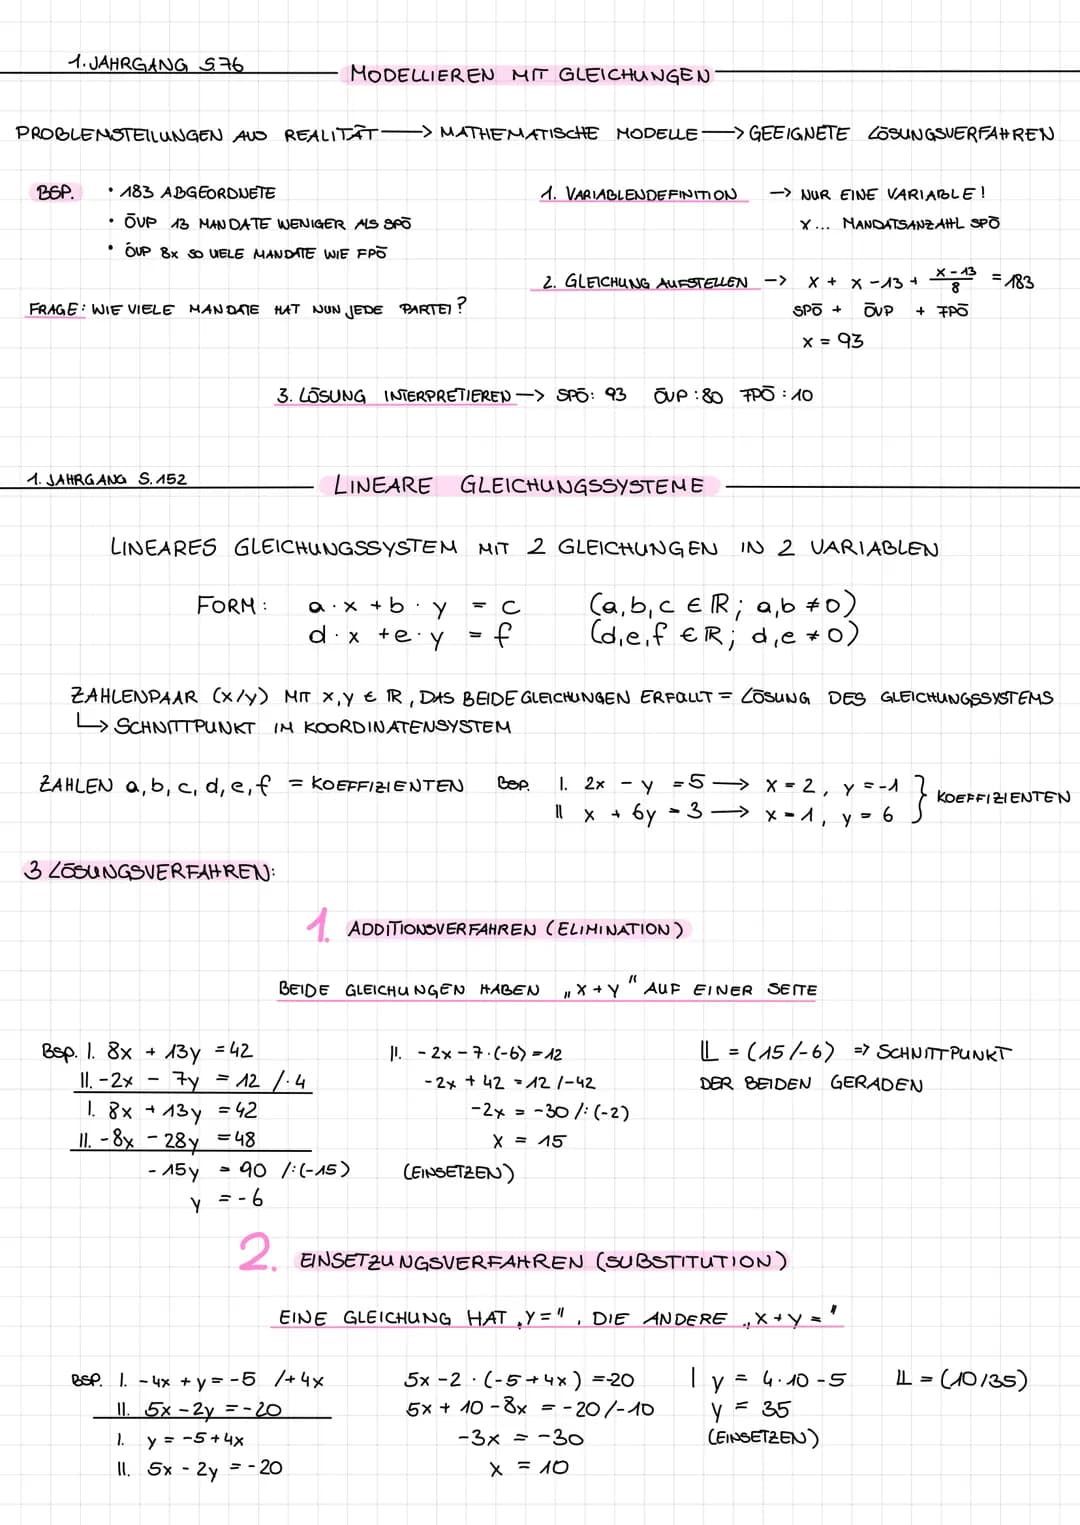 1. JAHRGANG S.76
MODELLIEREN MIT GLEICHUNGEN
PROBLEMSTELLUNGEN AUS REALITÄT → MATHEMATISCHE MODELLE → GEEIGNETE LÖSUNGSVERFAHREN
BSP. • 183 ABGEORDNETE
• ÖVP 13 MANDATE WENIGER ALS SPÖ
• ÖVP 8x SO VIELE MANDATE WIE FPÖ
FRAGE: WIE VIELE MANDATE HAT NUN JEDE PARTEI?
1. VARIABLENDEFINITION → NUR EINE VARIABLE!
X ... MANDATSANZAHL SPÖ
2. GLEICHUNG AUFSTELLEN → X + X - 13 + (X - 13)/8 = 183
SPÖ + ÖVP + FPÖ
X = 93
3. LÖSUNG INTERPRETIEREN → SPÖ: 93 ÖVP: 80 FPÖ: 10
1. JAHRGANG S. 152
LINEARE GLEICHUNGSSYSTEME
LINEARES GLEICHUNGSSYSTEM MIT 2 GLEICHUNGEN IN 2 VARIABLEN
FORM: a · x + b · y = c (a,b,c ∈ ℝ; a,b ≠ 0)
d · x + e · y = f (d,e,f ∈ ℝ; d,e ≠ 0)
ZAHLENPAAR (x/y) MIT x,y ∈ ℝ, DAS BEIDE GLEICHUNGEN ERFÜLLT = LÖSUNG DES GLEICHUNGSSYSTEMS
↳ SCHNITTPUNKT IM KOORDINATENSYSTEM
ZAHLEN a,b,c,d,e,f = KOEFFIZIENTEN BSP. I. 2x - y = 5 → x = 2, y = -1 } KOEFFIZIENTEN
II x + 6y = 3 → x = 1, y = 6
3 LÖSUNGSVERFAHREN:
1. ADDITIONSVERFAHREN (ELIMINATION)
BEIDE GLEICHUNGEN HABEN „X + Y" AUF EINER SEITE
BSP. I. 8x + 13y = 42
II. -2x - 7y = 12 /·4
I. 8x + 13y = 42
II. -8x - 28y = 48
-15y = 90 /:(-15)
y = -6
II. -2x - 7·(-6) = 12
-2x + 42 = 12 /-42
-2x = -30 /:(-2)
x = 15
(EINSETZEN)
𝕃 = (15/-6) => SCHNITTPUNKT
DER BEIDEN GERADEN
2. EINSETZUNGSVERFAHREN (SUBSTITUTION)
EINE GLEICHUNG HAT „Y=", DIE ANDERE „X+Y="
BSP. I. -4x + y = -5 /+4x
II. 5x - 2y = -20
I. y = -5 + 4x
II. 5x - 2y = -20
5x - 2 · (-5 + 4x) = -20
5x + 10 - 8x = -20 /-10
-3x = -30
x = 10
I y = 4·10 - 5
y = 35
(EINSETZEN)
𝕃 = (10/35)